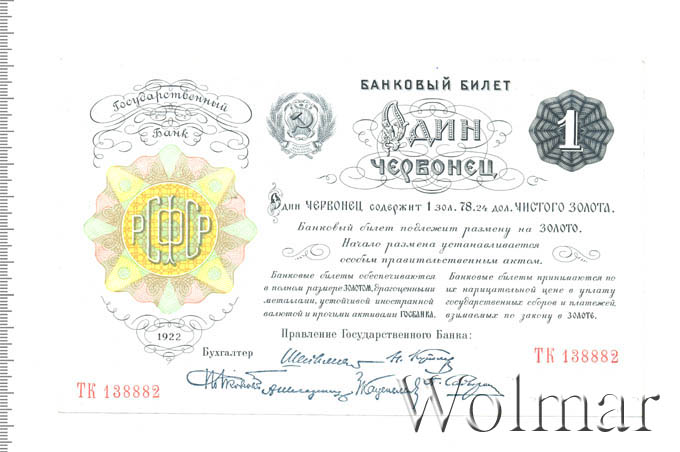 Государственный
Банк
РСФСР
1922
БАНКОВЫЙ БИЛЕТ
ОДИН
ЧЕРВОНЕЦ
1
Один ЧЕРВОНЕЦ содержит 1 зол. 78.24 дол. ЧИСТОГО ЗОЛОТА.
Банковый билет подлежит размену на ЗОЛОТО.
Начало размена устанавливается
особым правительственным актом.
Банковые билеты обеспечиваются
в полном размере ЗОЛОТОМ, драгоценными
металлами, устойчивой иностранной
валютой и прочими активами ГОСБАНКА.
Банковые билеты принимаются по
их нарицательной цене в уплату
государственных сборов и платежей,
взимаемых по закону в ЗОЛОТЕ.
Правление Государственного Банка:
Бухгалтер
ТК 138882
ТК 138882
Wolmar